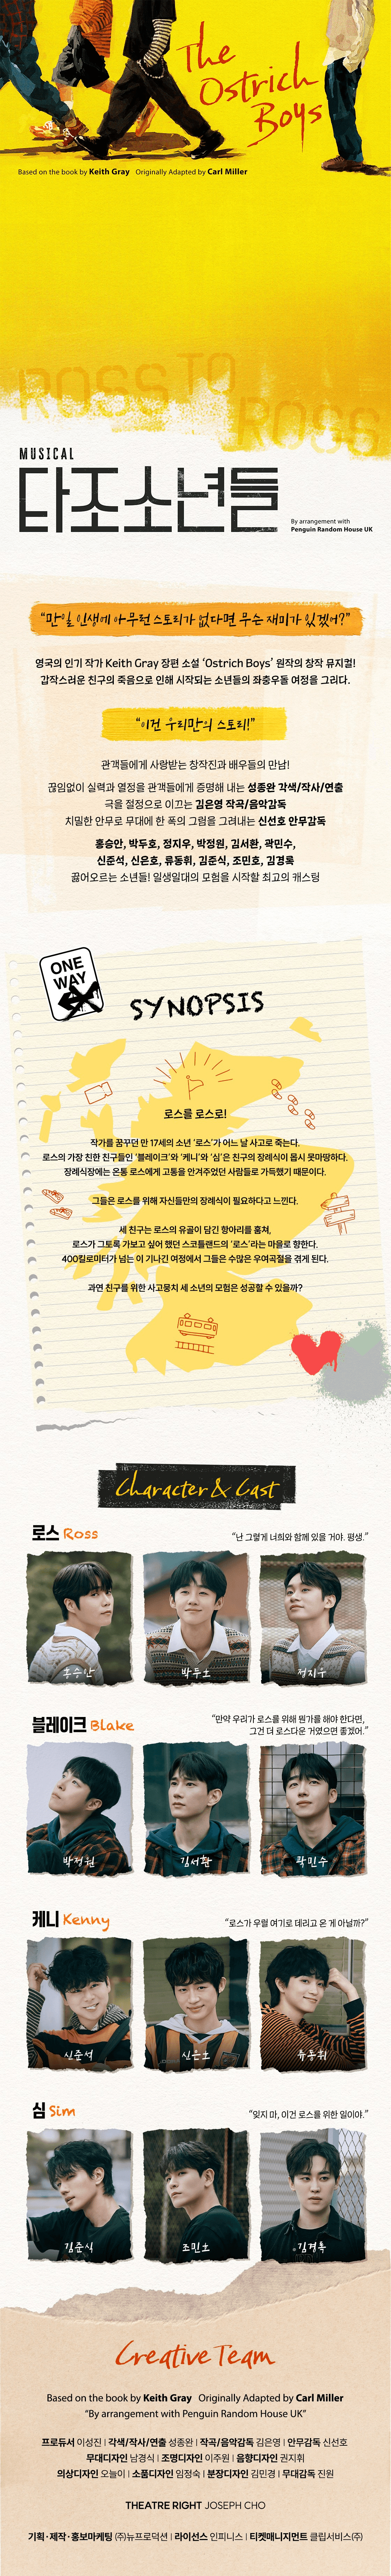 The
Ostrich
Boys
Based on the book by Keith Gray Originally Adapted by Carl Miller
ROSS TO
ROSS
MUSICAL
타조소년들
By arrangement with
Penguin Random House UK
“만일 인생에 아무런 스토리가 없다면 무슨 재미가 있겠어?”
영국의 인기 작가 Keith Gray 장편 소설 ‘Ostrich Boys’ 원작의 창작 뮤지컬!
갑작스러운 친구의 죽음으로 인해 시작되는 소년들의 좌충우돌 여정을 그리다.
“이건 우리만의 스토리!”
관객들에게 사랑받는 창작진과 배우들의 만남!
끊임없이 실력과 열정을 관객들에게 증명해 내는 성종완 각색/작사/연출
극을 절정으로 이끄는 김은영 작곡/음악감독
치밀한 안무로 무대에 한 폭의 그림을 그려내는 신선호 안무감독
홍승안, 박두호, 정지우, 박정원, 김서환, 곽민수,
신준석, 신은호, 류동휘, 김준식, 조민호, 김경록
끓어오르는 소년들! 일생일대의 모험을 시작할 최고의 캐스팅
ONE
WAY
SYNOPSIS
로스를 로스로!
작가를 꿈꾸던 만 17세의 소년 ‘로스’가 어느 날 사고로 죽는다.
로스의 가장 친한 친구들인 ‘블레이크’와 ‘케니’와 ‘심’은 친구의 장례식이 몹시 못마땅하다.
장례식장에는 온통 로스에게 고통을 안겨주었던 사람들로 가득했기 때문이다.
그들은 로스를 위해 자신들만의 장례식이 필요하다고 느낀다.
세 친구는 로스의 유골이 담긴 항아리를 훔쳐,
로스가 그토록 가보고 싶어 했던 스코틀랜드의 ‘로스’라는 마을로 향한다.
400킬로미터가 넘는 이 기나긴 여정에서 그들은 수많은 우여곡절을 겪게 된다.
과연 친구를 위한 사고뭉치 세 소년의 모험은 성공할 수 있을까?
Character & Cast
로스 Ross
“난 그렇게 너희와 함께 있을 거야. 평생.”
홍승안 박두호 정지우
블레이크 Blake
“만약 우리가 로스를 위해 뭔가를 해야 한다면,
그건 더 로스다운 거였으면 좋겠어.”
박정원 김서환 곽민수
케니 Kenny
“로스가 우릴 여기로 데리고 온 게 아닐까?”
신준석 신은호 류동휘
심 Sim
“잊지 마, 이건 로스를 위한 일이야.”
김준식 조민호 김경록
Creative Team
Based on the book by Keith Gray Originally Adapted by Carl Miller
“By arrangement with Penguin Random House UK”
프로듀서 이성진 | 각색/작사/연출 성종완 | 작곡/음악감독 김은영 | 안무감독 신선호
무대디자인 남경식 | 조명디자인 이주원 | 음향디자인 권지휘
의상디자인 오늘이 | 소품디자인 임정숙 | 분장디자인 김민경 | 무대감독 진원
THEATRE RIGHT JOSEPH CHO
기획·제작·홍보마케팅 ㈜뉴프로덕션 | 라이선스 인피니스 | 티켓매니지먼트 클립서비스㈜